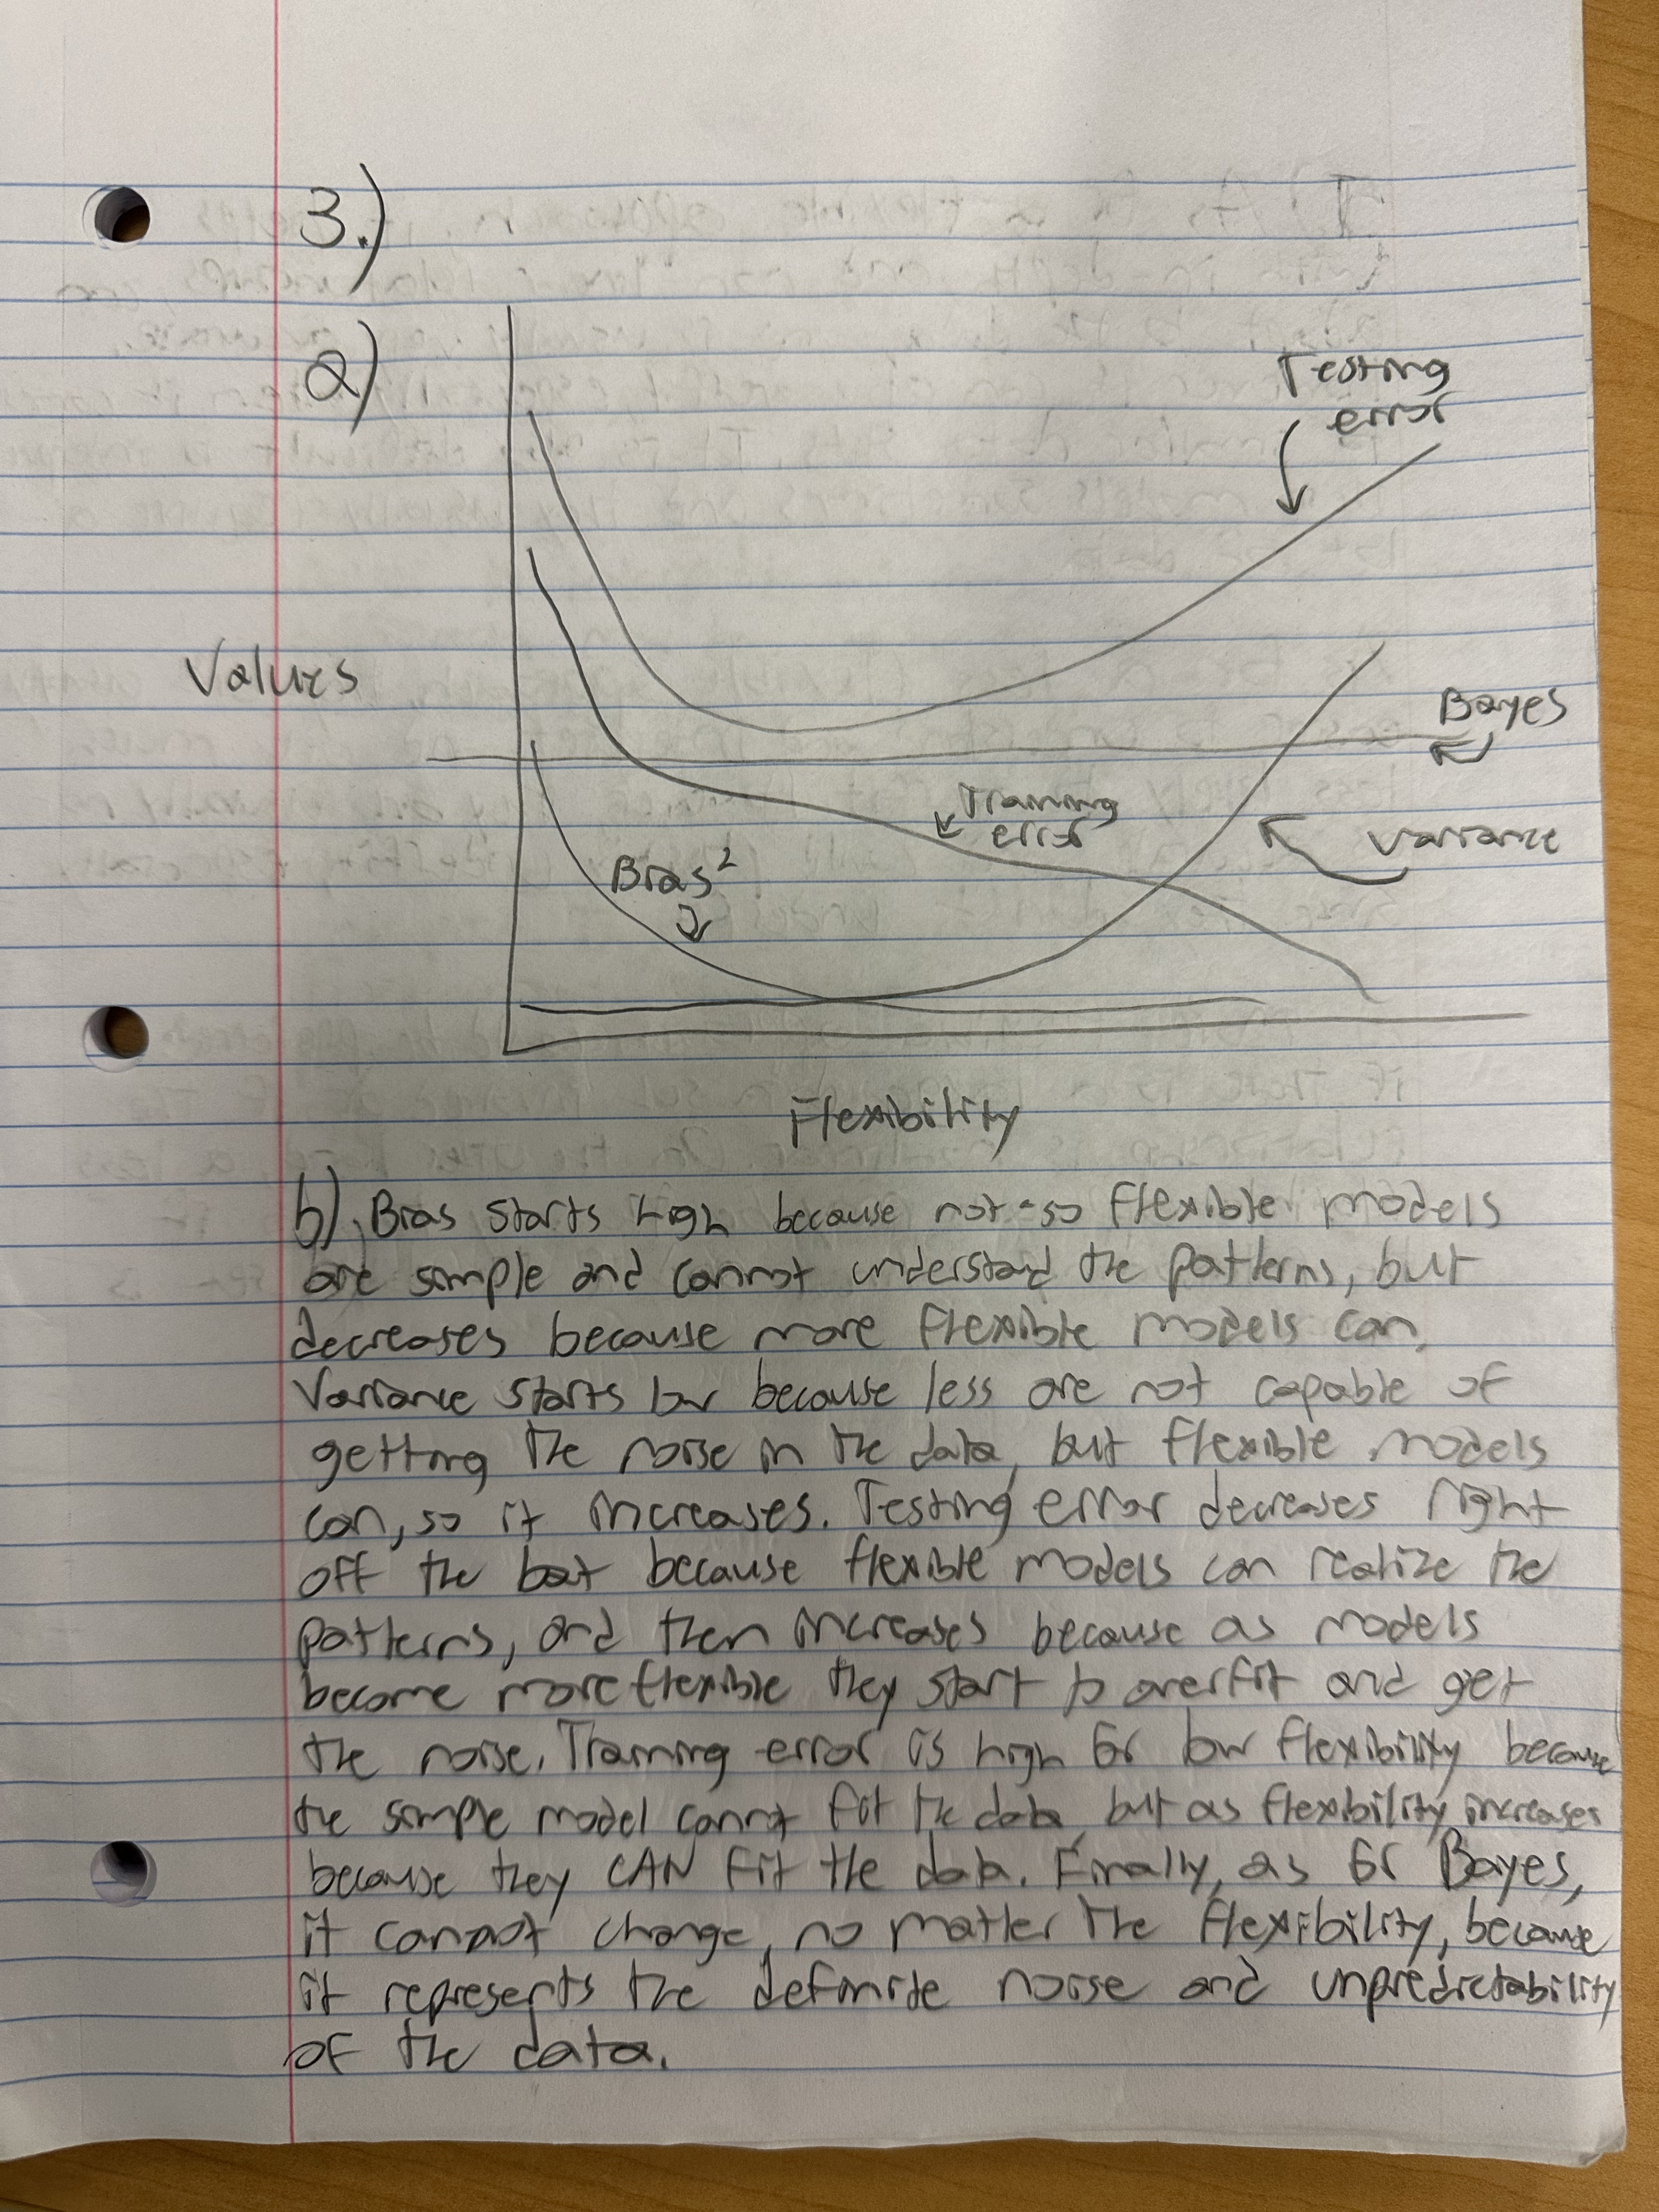 3.)
a)
Testing
error
Values
Bayes
Training
error
Variance
Bias²
Flexibility
b) Bias starts high because not-so flexible models
are simple and cannot understand the patterns, but
decreases because more flexible models can.
Variance starts low because less are not capable of
getting the noise in the data, but flexible models
can, so it increases. Testing error decreases right
off the bat because flexible models can realize the
patterns, and then increases because as models
become more flexible they start to overfit and get
the noise. Training error is high for low flexibility because
the simple model cannot fit the data, but as flexibility increases
because they CAN fit the data. Finally, as for Bayes,
it cannot change, no matter the flexibility, because
it represents the definite noise and unpredictability
of the data.